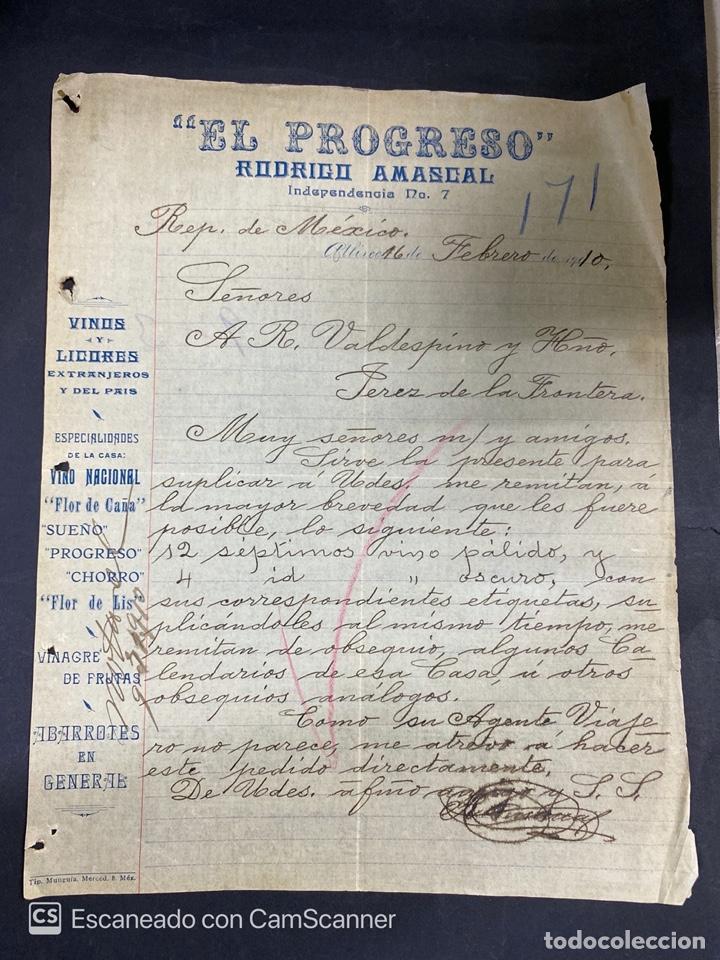 "EL PROGRESO"
RODRIGO AMASCAL
Independencia No. 7
171
Rep. de México.
Atlixco 16 de Febrero de 1910,
Señores
A. R. Valdespino y Hño,
Jerez de la Frontera.
Muy señores m/ y amigos.
Sirve la presente para
suplicar á Udes. me remitan, a
la mayor brevedad que les fuere
posible, lo siguiente:
12 séptimos vino pálido, y
4 id " oscuro, con
sus correspondientes etiquetas, su
plicandoles al mismo tiempo, me
remitan de obsequio, algunos Ca-
lendarios de esa Casa, ú otros
obsequios análogos.
Como su Agente Viaje
ro no parece, me atrevo á hacer
este pedido directamente.
De Udes. afmo amigo y S. S.
VINOS
Y
LICORES
EXTRANJEROS
Y DEL PAIS
ESPECIALIDADES
DE LA CASA:
VINO NACIONAL
"Flor de Caña"
"SUEÑO"
"PROGRESO"
"CHORRO"
"Flor de Lis"
VINAGRE
DE FRUTAS
ABARROTES
EN
GENERAL
Tip. Munguía, Merced, 8. Méx.
CS Escaneado con CamScanner
todocoleccion